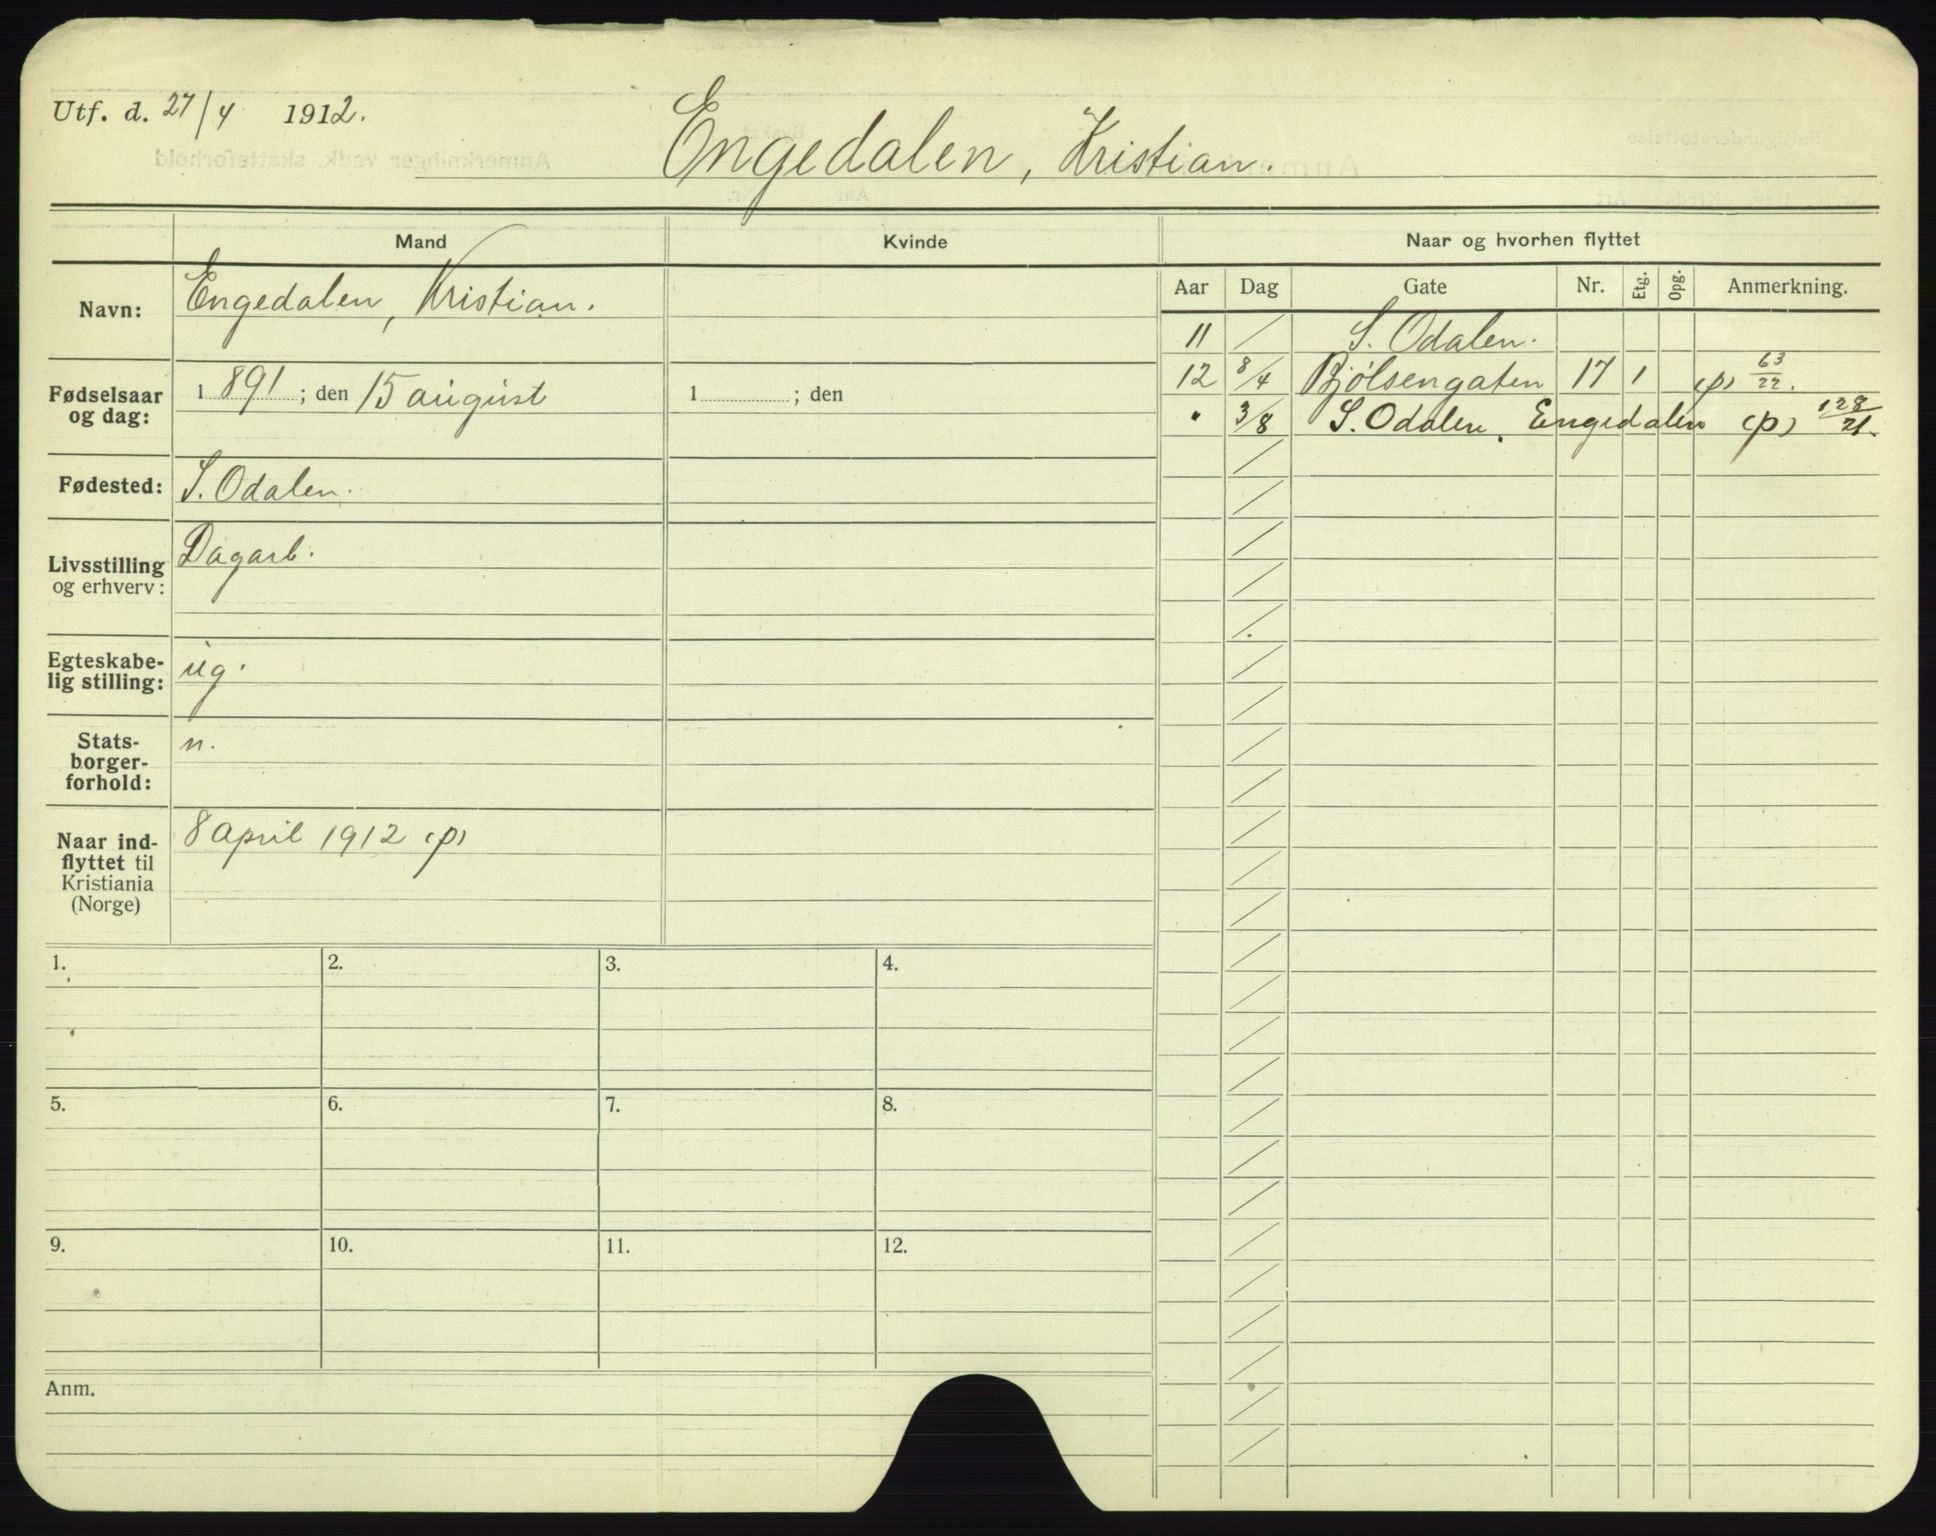 Utf. d. 27/4 1912.
Engedalen, Kristian.
Mand Kvinde Naar og hvorhen flyttet
Navn: Engedalen, Kristian.
Aar Dag Gate Nr. Etg. Opg. Anmerkning.
11 / S. Odalen.
12 8/4 Bjølsengaten 17 1 (p) 63/22.
" 3/8 S. Odalen, Engedalen (p) 128/21.
Fødselsaar og dag: 1891; den 15 august 1 ; den
Fødested: S. Odalen.
Livsstilling og erhverv: Dagarb.
Egteskabe-
lig stilling: ug.
Stats-
borger-
forhold: n.
Naar ind-
flyttet til
Kristiania
(Norge) 8 april 1912 (p)
1. 2. 3. 4.
5. 6. 7. 8.
9. 10. 11. 12.
Anm.